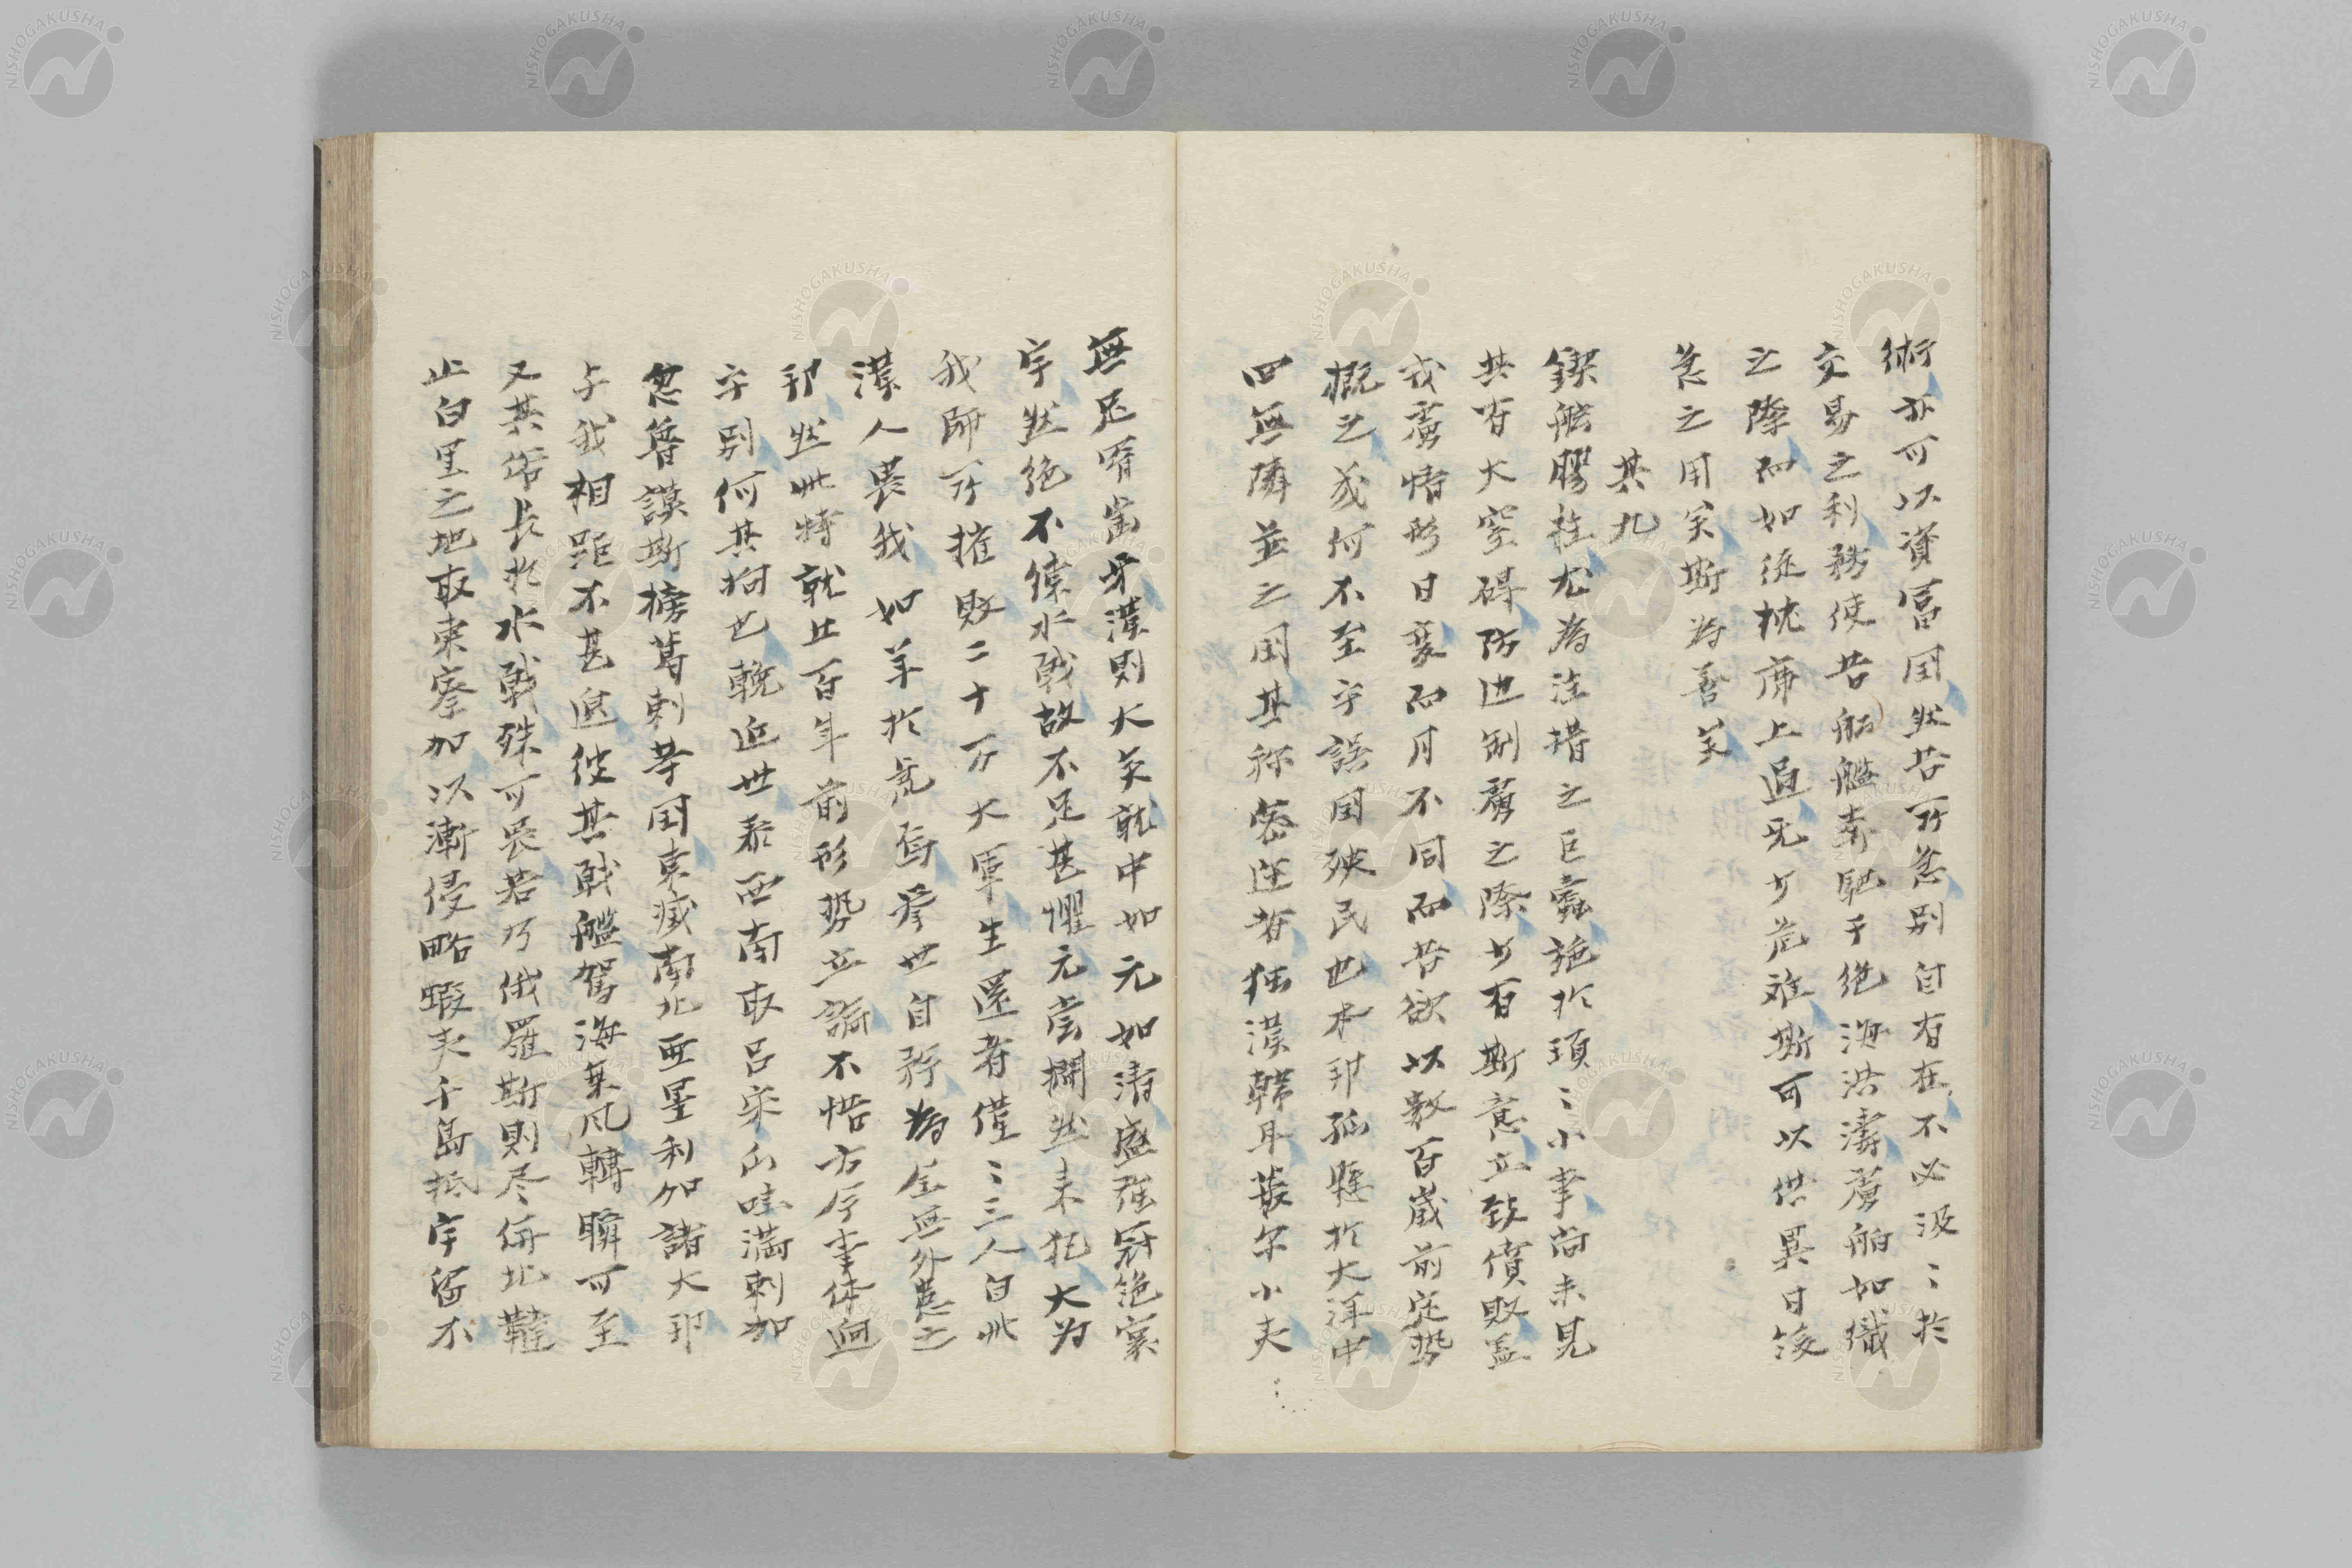 術亦可以資富国然若所急別自有在不必汲〻於
交易之利務使若船艦奔馳于絶海洪濤虜舶如織
之際而如従枕席上過死少危難斯可以供異日後
急之用矣斯為善矣
其九
鍥舷膠柱尤為注措之巨蠹施於瑣〻小事尚未見
其有大窒碍防辺制虜之際少有斯意立致僨敗蓋
戎虜情形日変而月不同而若欲以数百歳前定勢
概之幾何不至乎誤国殃民也本邦孤懸於大洋中
四無隣並之国其称密迩者独漢韓耳韓尓小夫
無足啻歯牙漢則大矣就中如元如清盛強冠絶寰
宇然絶不習水戦故不足甚懼元嘗撊然来犯大為
我師所摧敗二十万大軍生還者僅〻三人自此
漢人畏我如羊於虎焉挙世自矜為全無外患之
邦然此特就此百年前形勢立論不惜方斥事体迥
乎別何其拘也輓近世泰西南取呂宋瓜哇満剌加
忽魯謨斯榜葛剌等国東滅南北亜墨利加諸大邦
与我相距不甚遠彼其戦艦駕海乗風轉瞬可至
又其術長於水戦殊可畏若乃俄羅斯則尽併北韃
止白里之地取東察加以漸侵略蝦夷千島抵宇留不